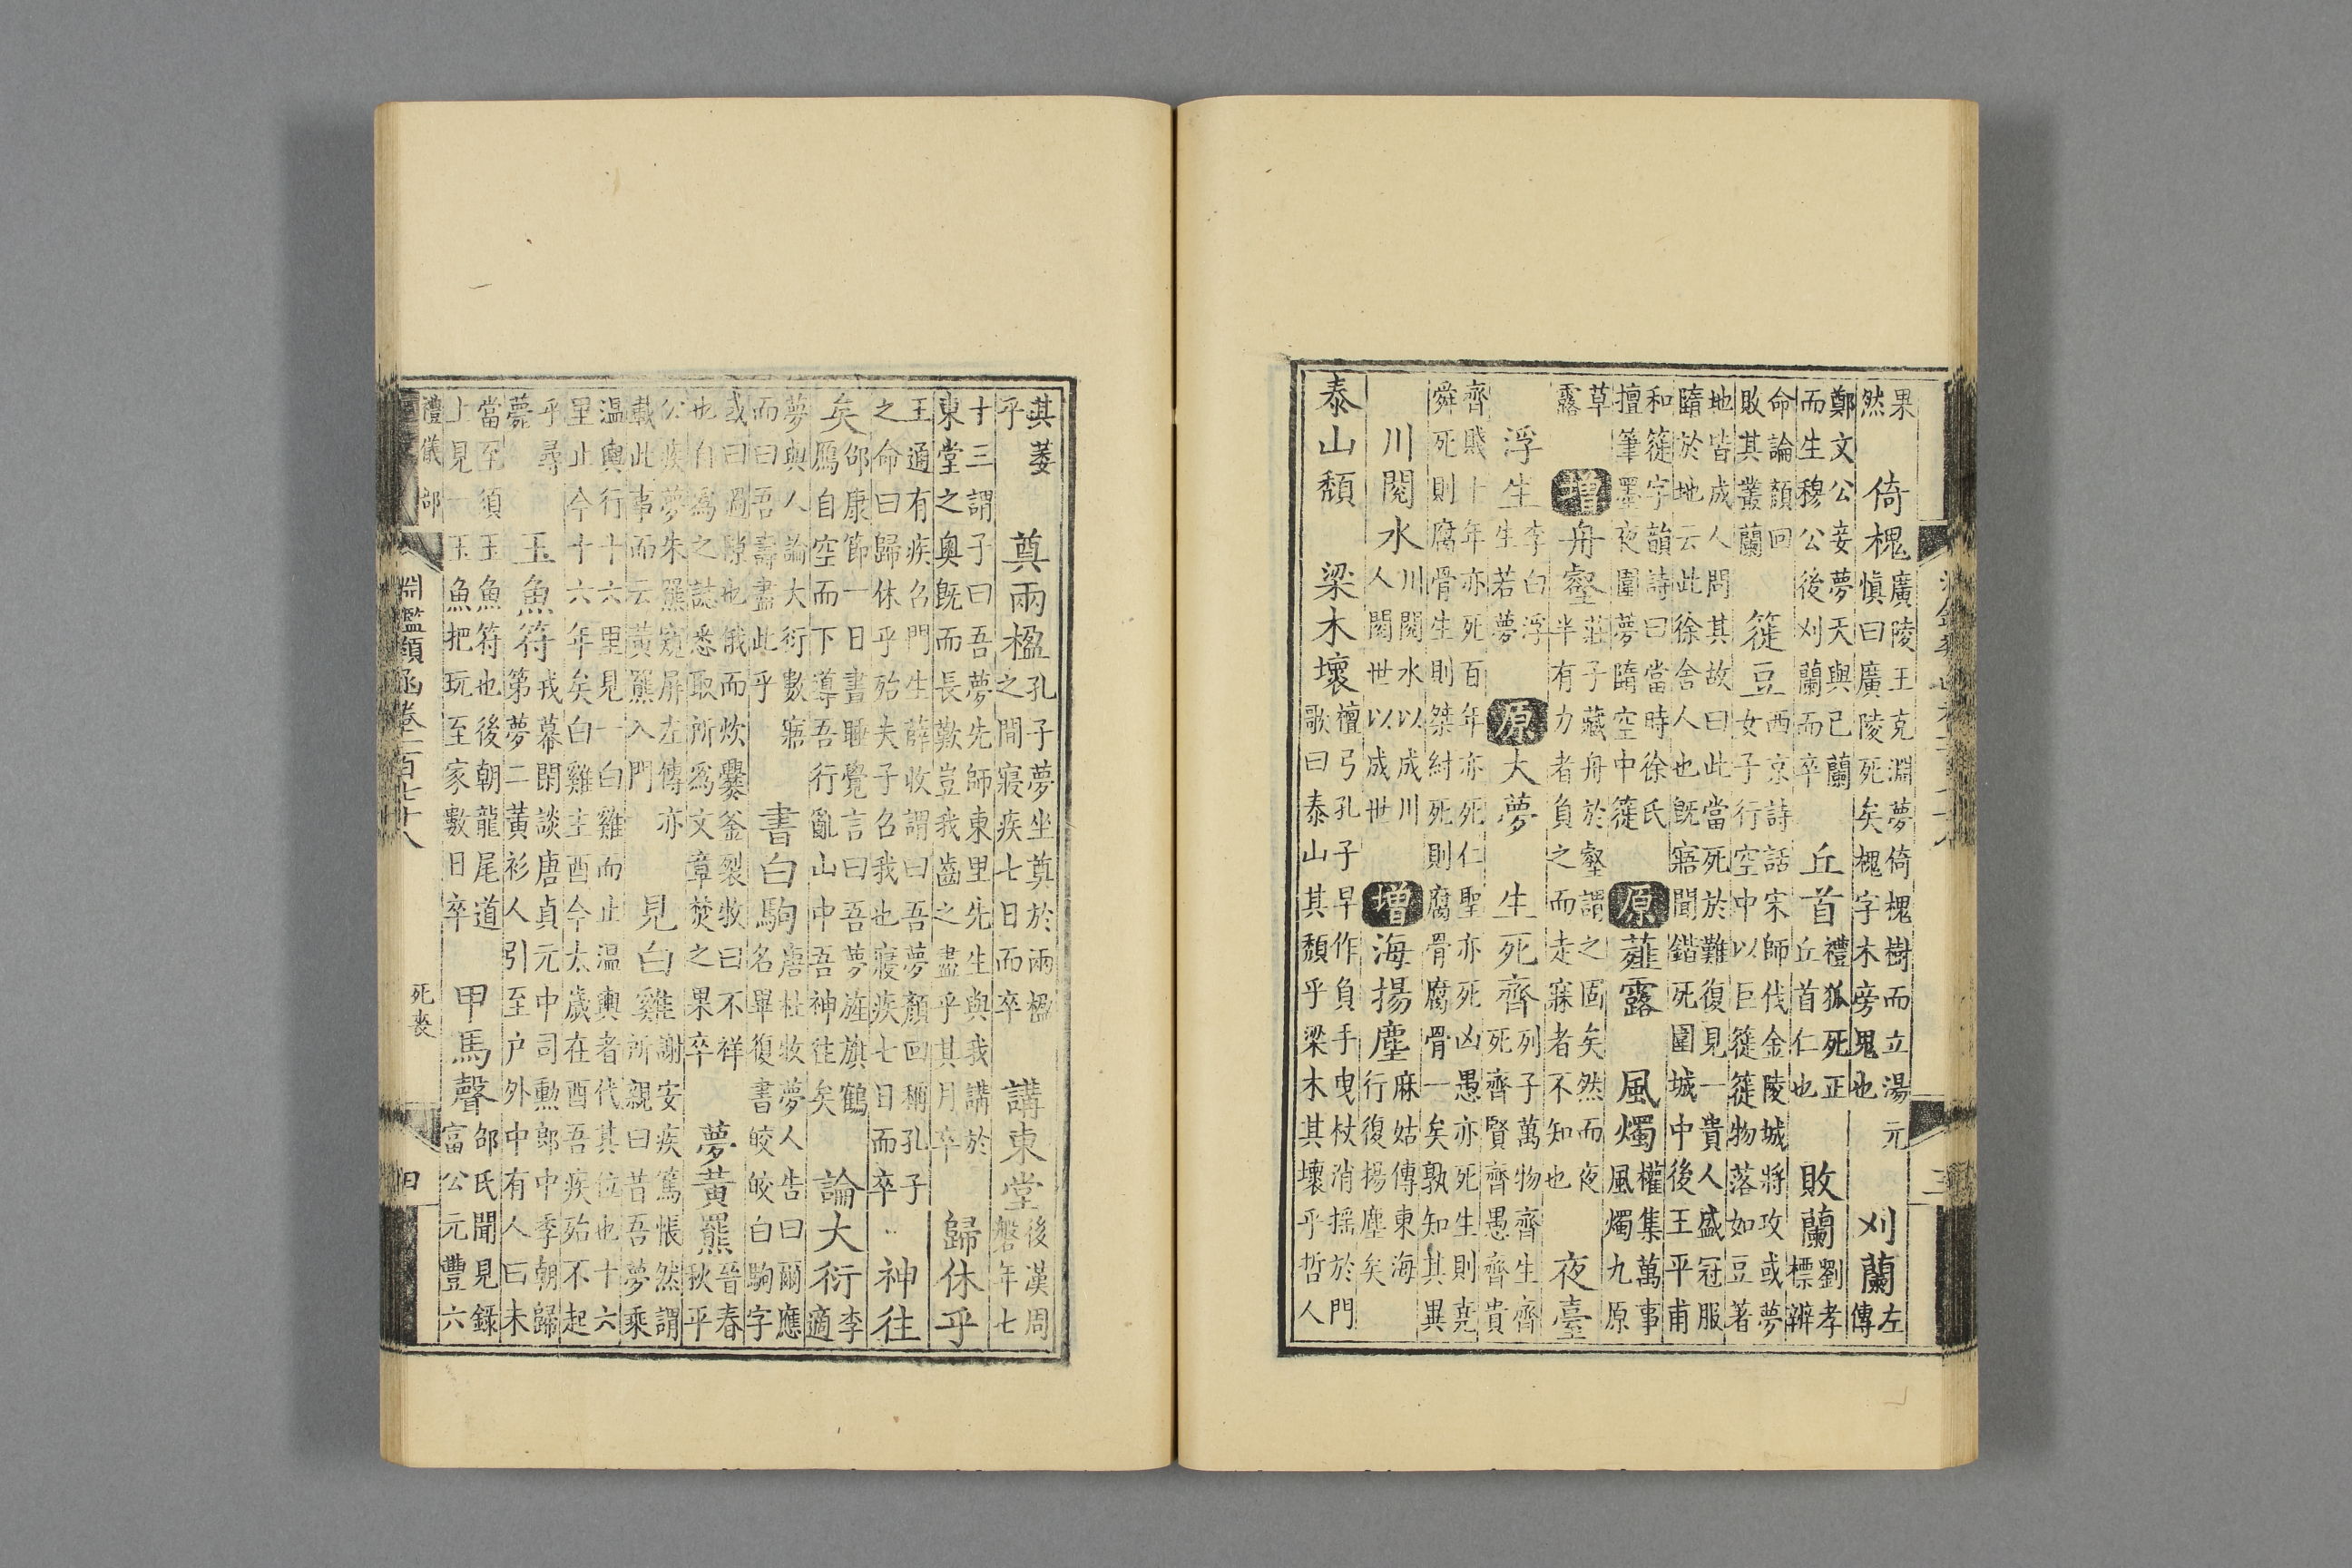 果
然
倚槐
廣陵王克淵夢倚槐樹而立湯元
慎曰廣陵死矣槐字木旁鬼也
刈蘭
左
傳
鄭文公妾夢天與已蘭
而生穆公後刈蘭而卒
丘首
禮狐死正
丘首仁也
敗蘭
劉孝
標辨
命論顏回
敗其叢蘭
簁豆
西京詩話宋師伐金陵城將攻或夢
女子行空中以巨簁簁物落如豆著
地皆成人問其故曰此當死於難復見一貴人盛冠服
隨於地云此徐舍人也既寤聞鍇死圍城中後王平甫
和簁字韻詩曰當時徐氏
擅筆墨夜圍夢隨空中簁
原
薤露
風燭
權集萬事
風燭九原
草
露
增
舟壑
莊子藏舟於壑謂之固矣然而夜
半有力者負之而走寐者不知也
夜臺
浮生
李白浮
生若夢
原
大夢
生死齊
列子萬物齊生齊
死齊賢齊愚齊貴
齊賤十年亦死百年亦死仁聖亦死凶愚亦死生則堯
舜死則腐骨生則桀紂死則腐骨腐骨一矣孰知其異
川閱水
川閱水以成川
人閱世以成世
增
海揚塵
麻姑傳東海
行復揚塵矣
泰山頹
梁木壞
檀弓孔子早作負手曳杖消搖於門
歌曰泰山其頹乎梁木其壞乎哲人
其萎
乎
奠兩楹
孔子夢坐奠於兩楹
之間寢疾七日而卒
講東堂
後漢周
磐年七
十三謂子曰吾夢先師東里先生與我講於
東堂之奧既而長歎豈我齒之盡乎其月卒
歸休乎
王通有疾召門生薛收謂曰吾夢顏回稱孔子
之命曰歸休乎殆夫子召我也寢疾七日而卒
神往
矣
邵康節一日晝睡覺言曰吾夢旌旗鶴
鴈自空而下導吾行亂山中吾神往矣
論大衍
李
適
夢與人論大衍數寤
而曰吾壽盡此乎
書白駒
唐杜牧夢人告曰爾應
名畢復書皎皎白駒字
或曰過隙也俄而炊爨釜裂牧曰不祥
也自為之誌悉取所為文章焚之果卒
夢黃羆
晉春
秋平
公疾夢朱羆窺屏左傳亦
載此事而云黃羆入門
見白雞
謝安疾篤悵然謂
所親曰昔吾夢乘
温輿行十六里見一白雞而止温輿者代其位也十六
里止今十六年矣白雞主酉今太歲在酉吾疾殆不起
乎尋
薨
玉魚符
戎幕閒談唐貞元中司勳郎中季朝歸
第夢二黃衫人引至户外中有人曰未
當至須玉魚符也後朝龍尾道
上見一玉魚把玩至家數日卒
甲馬聲
邵氏聞見錄
富公元豐六
禮儀部
淵鑑類函卷一百七十八
死喪
四